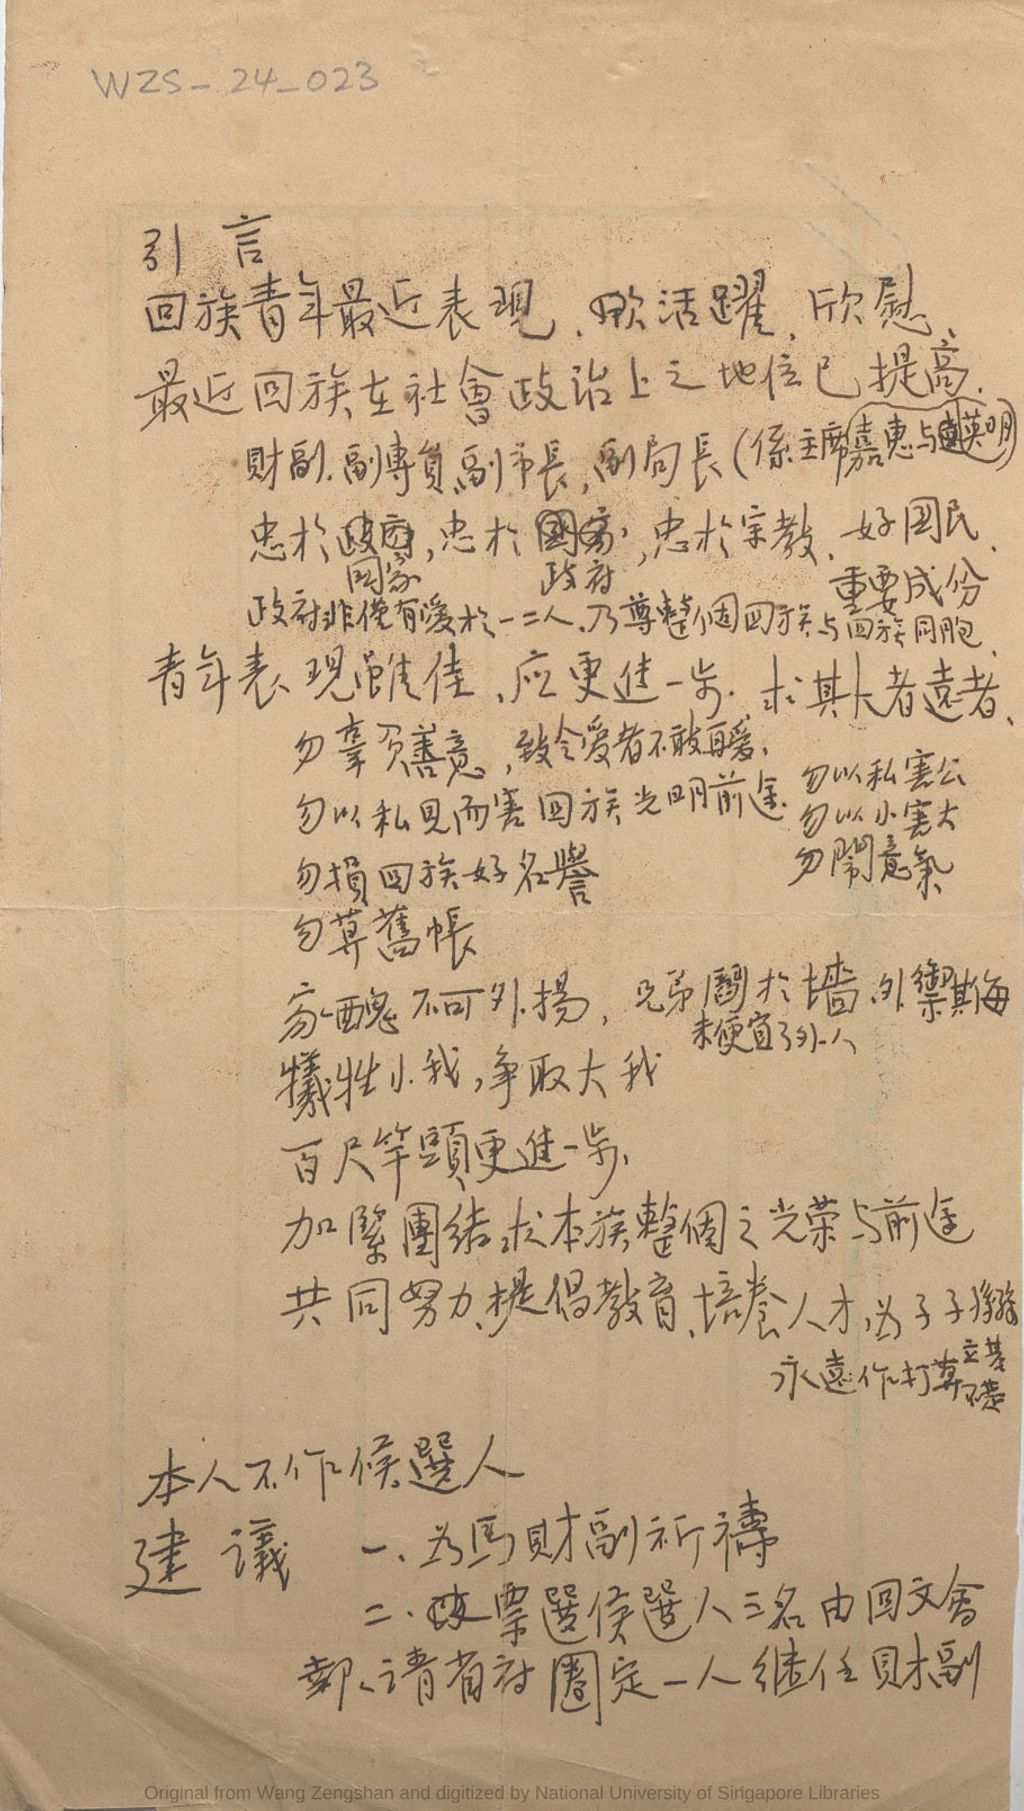 WZS-24-023
引 言
回族青年最近表現、活躍、欣慰、
最近回族在社會政治上之地位已提高.
財副、副專員、副市長、副局長(係主席嘉惠与英明)
忠於政府,忠於國家,忠於宗教、好國民、
國家 政府 重要成份
政府非僅有愛於一二人、乃尊整個回族与回族同胞
青年表現雖佳、应更進一步.求其大者遠者、
勿辜負善意,致令愛者不敢再愛、
勿以私害公
勿以私見而害回族光明前途、
勿以小害大
勿損回族好名譽
勿鬧意氣
勿算舊帳
家醜不可外揚,兄弟鬩於墻外禦其侮
未便宜了外人
犧牲小我,爭取大我
百尺竿頭更進一步、
加緊團結求本族整個之光荣与前途
共同努力、提倡教育、培養人才,为子子孫孫
永遠作打算立基礎
本人不作候選人
建 議 一、为馬財副祈禱
二、票選候選人三名由回文會
報請省府圈定一人继任財副
Original from Wang Zengshan and digitized by National University of Singapore Libraries